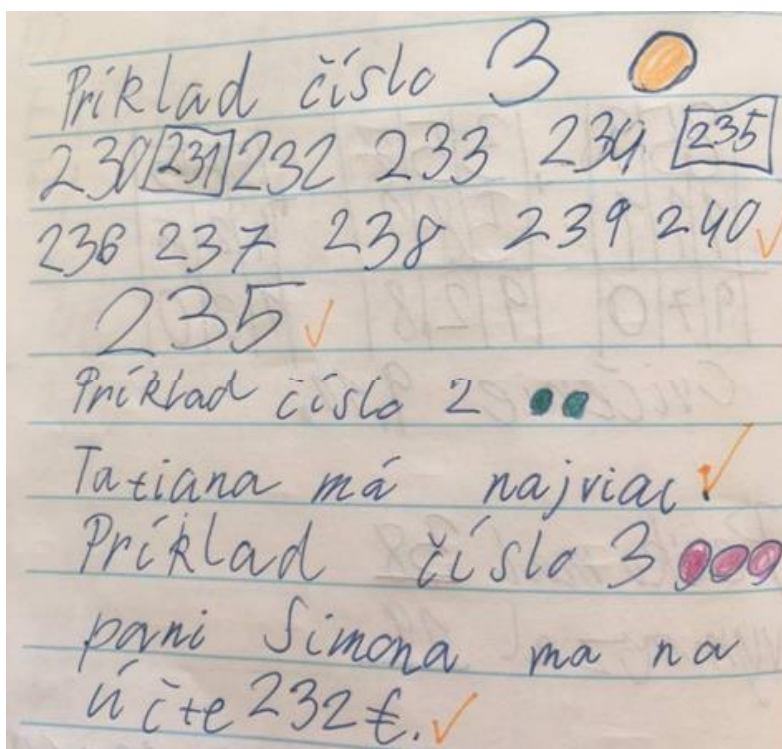 Príklad číslo 3
230 231 232 233 234 235
236 237 238 239 240
235
Príklad číslo 2
Tatiana má najviac.
Príklad číslo 3
pani Simona ma na
účte 232 €.